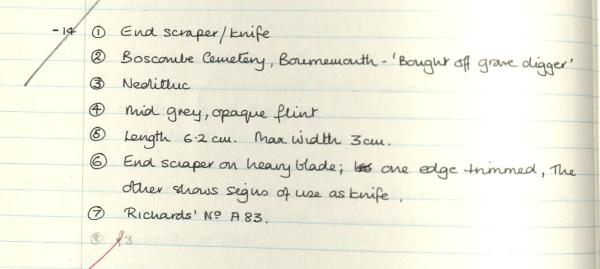 -14 ① End scraper/knife
② Boscombe Cemetery, Bournemouth - 'Bought off grave digger'
③ Neolithic
④ Mid grey, opaque flint
⑤ Length 6.2 cm. Max. width 3cm.
⑥ End scraper on heavy blade; one edge trimmed, The
other shows signs of use as knife.
⑦ Richards' Nº A83.
⑧